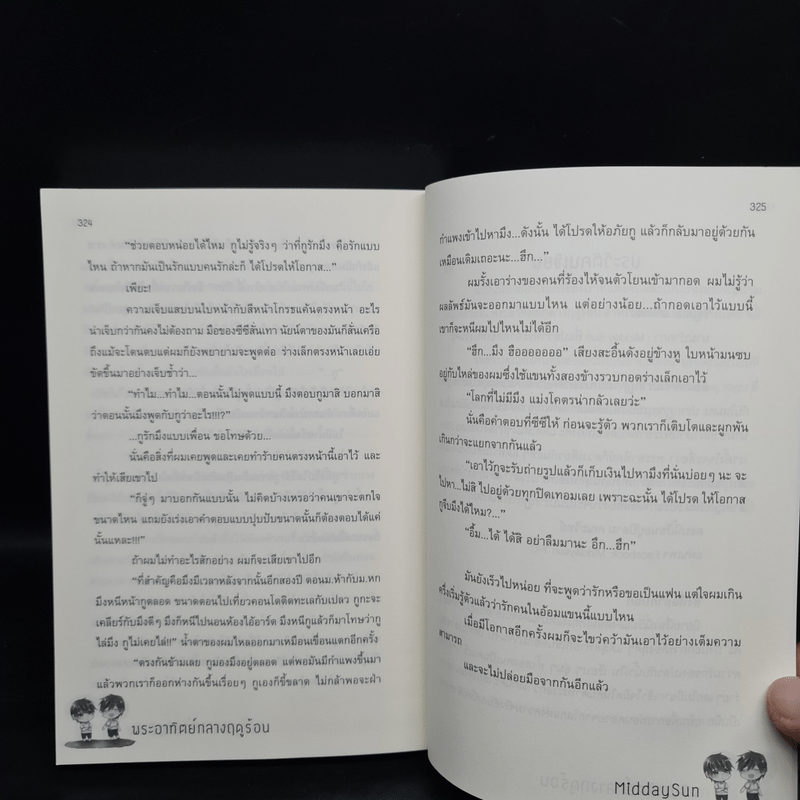 324
“ช่วยตอบหน่อยได้ไหม กูไม่รู้จริงๆ ว่าที่กูรักมึง คือรักแบบ
ไหน ถ้าหากมันเป็นรักแบบคนรักล่ะก็ ได้โปรดให้โอกาส...”
เพียะ!
ความเจ็บแสบบนใบหน้ากับสีหน้าโกรธแค้นตรงหน้า อะไร
น่าเจ็บกว่ากันคงไม่ต้องถาม มือของซีซีสั่นเทา นัยน์ตาของมันก็สั่นเครือ
ถึงแม้จะโดนตบแต่ผมก็ยังพยายามจะพูดต่อ ร่างเล็กตรงหน้าเลยเอ่ย
ขัดขึ้นมาอย่างเจ็บช้ำว่า...
“ทำไม...ทำไม...ตอนนั้นไม่พูดแบบนี้ มึงตอบกูมาสิ บอกมาสิ
ว่าตอนนั้นมึงพูดกับกูว่าอะไร!!!?”
...กูรักมึงแบบเพื่อน ขอโทษด้วย...
นั่นคือสิ่งที่ผมเคยพูดและเคยทำร้ายคนตรงหน้านี้เอาไว้ และ
ทำให้เสียเขาไป
“ก็จู่ๆ มาบอกกันแบบนั้น ไม่คิดบ้างเหรอว่าคนเขาจะตกใจ
ขนาดไหน แถมยังเร่งเอาคำตอบแบบปุบปับขนาดนั้นก็ต้องตอบได้แค่
นั้นแหละ!!!”
ถ้าผมไม่ทำอะไรสักอย่าง ผมก็จะเสียเขาไปอีก
“ที่สำคัญคือมึงมีเวลาหลังจากนั้นอีกสองปี ตอนม.ห้ากับม.หก
มึงหนีหน้ากูตลอด ขนาดตอนไปเที่ยวคอนโดติดทะเลกับเปลว กูกะจะ
เคลียร์กับมึงดีๆ มึงก็หนีไปนอนห้องไอ้อาร์ต มึงหนีกูแล้วก็มาโทษว่ากู
ไล่มึง กูไม่เคยไล่!!” น้ำตาของผมไหลออกมาเหมือนเขื่อนแตกอีกครั้ง
“ตรงกันข้ามเลย กูมองมึงอยู่ตลอด แต่พอมันมีกำแพงขึ้นมา
แล้วพวกเราก็ออกห่างกันขึ้นเรื่อยๆ กูเองก็ขี้ขลาด ไม่กล้าพอจะฝ่า
พระอาทิตย์กลางฤดูร้อน
325
กำแพงเข้าไปหามึง...ดังนั้น ได้โปรดให้อภัยกู แล้วก็กลับมาอยู่ด้วยกัน
เหมือนเดิมเถอะนะ...ฮึก...”
ผมรั้งเอาร่างของคนที่ร้องไห้จนตัวโยนเข้ามากอด ผมไม่รู้ว่า
ผลลัพธ์มันจะออกมาแบบไหน แต่อย่างน้อย...ถ้ากอดเอาไว้แบบนี้
เขาก็จะหนีผมไปไหนไม่ได้อีก
“ฮึก...มึง ฮือออออออ” เสียงสะอื้นดังอยู่ข้างหู ใบหน้ามนซบ
อยู่กับไหล่ของผมซึ่งใช้แขนทั้งสองข้างรวบกอดร่างเล็กเอาไว้
“โลกที่ไม่มีมึง แม่งโคตรน่ากลัวเลยว่ะ”
นั่นคือคำตอบที่ซีซีให้ ก่อนจะรู้ตัว พวกเราก็เติบโตและผูกพัน
เกินกว่าจะแยกจากกันแล้ว
“เอาไว้กูจะรับถ่ายรูปแล้วก็เก็บเงินไปหามึงที่นั่นบ่อยๆ นะ จะ
ไปหา...ไม่สิ ไปอยู่ด้วยทุกปิดเทอมเลย เพราะฉะนั้น ได้โปรด ให้โอกาส
กูจีบมึงได้ไหม?...”
“อื้ม...ได้ ได้สิ อย่าลืมมานะ ฮึก...ฮึก”
มันยังเร็วไปหน่อย ที่จะพูดว่ารักหรือขอเป็นแฟน แต่ใจผมเกิน
ครึ่งเริ่มรู้ตัวแล้วว่ารักคนในอ้อมแขนนี้แบบไหน
เมื่อมีโอกาสอีกครั้งผมก็จะไขว่คว้ามันเอาไว้อย่างเต็มความ
สามารถ
และจะไม่ปล่อยมือจากกันอีกแล้ว
MiddaySun